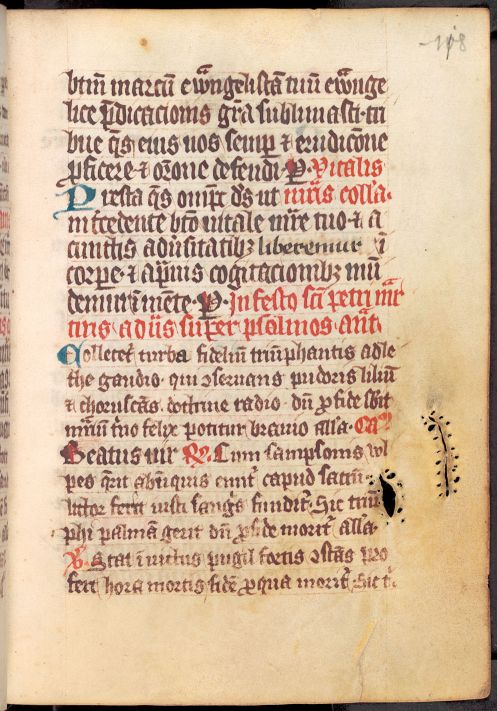 108
btm̄ marcū ewāngelistā tuū ewānge
lice p̄dicacionis gr̄a sublimasti · tri
bue q̄s eius nos semp̄ ⁊ erudicōne
ꝓficere · ⁊ orōne defendi · P · Vitalis
Presta q̄s omp̄s ds̄ ut mr̄is coll̄a ·
intcedente btō uitale mr̄e tuo · ⁊ a
cunctis adūsitatibꝫ liberemur ī
corpe · ⁊ a p̄uis cogitacionibꝫ mū
demur ī mēte · P · In festo sc̄i petri mr̄
tiris ad ūs super psolmos ant̄
Colletet̄ turba fideliū triūphantis adle
the gaudio · qui ↄseruans pudoris liliū
⁊ choruscās doctrine radio · dū ꝓ fide
suo felix potitur brauio all̄a · Ca
Beatus uir R Cum sampsonis vl
pes q̄rūt abūquis eunt̄ capud sacrū
lictor ferit iusti sangˀs fundit̄ · Sic triū
phi palmā gerit dū ꝓ fide morit̄ all̄a ·
V · Stat ī uictus pugil fortis ↄstās pro
fert hora mortis fidē ꝓ qua morit̄ · Sic t̄ ·